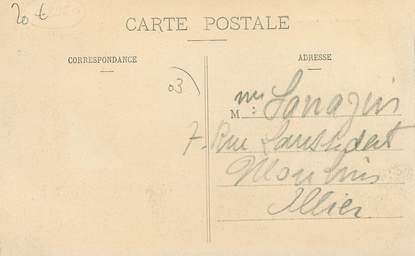 20 €
CARTE POSTALE
CORRESPONDANCE
ADRESSE
03)
M me Sarrazin
7, Rue Laussedat
Moulins
Allier